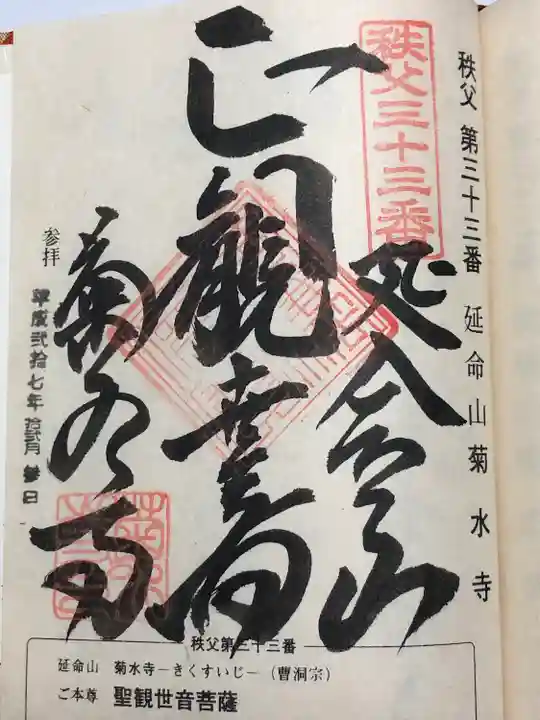 秩父 第三十三番 延命山菊水寺
秩父三十三番
延命山
正観世音
菊水寺
参拝
平成弐拾七年 拾弐月 参日
秩父第三十三番
延命山 菊水寺-きくすいじ-(曹洞宗)
ご本尊 聖観世音菩薩